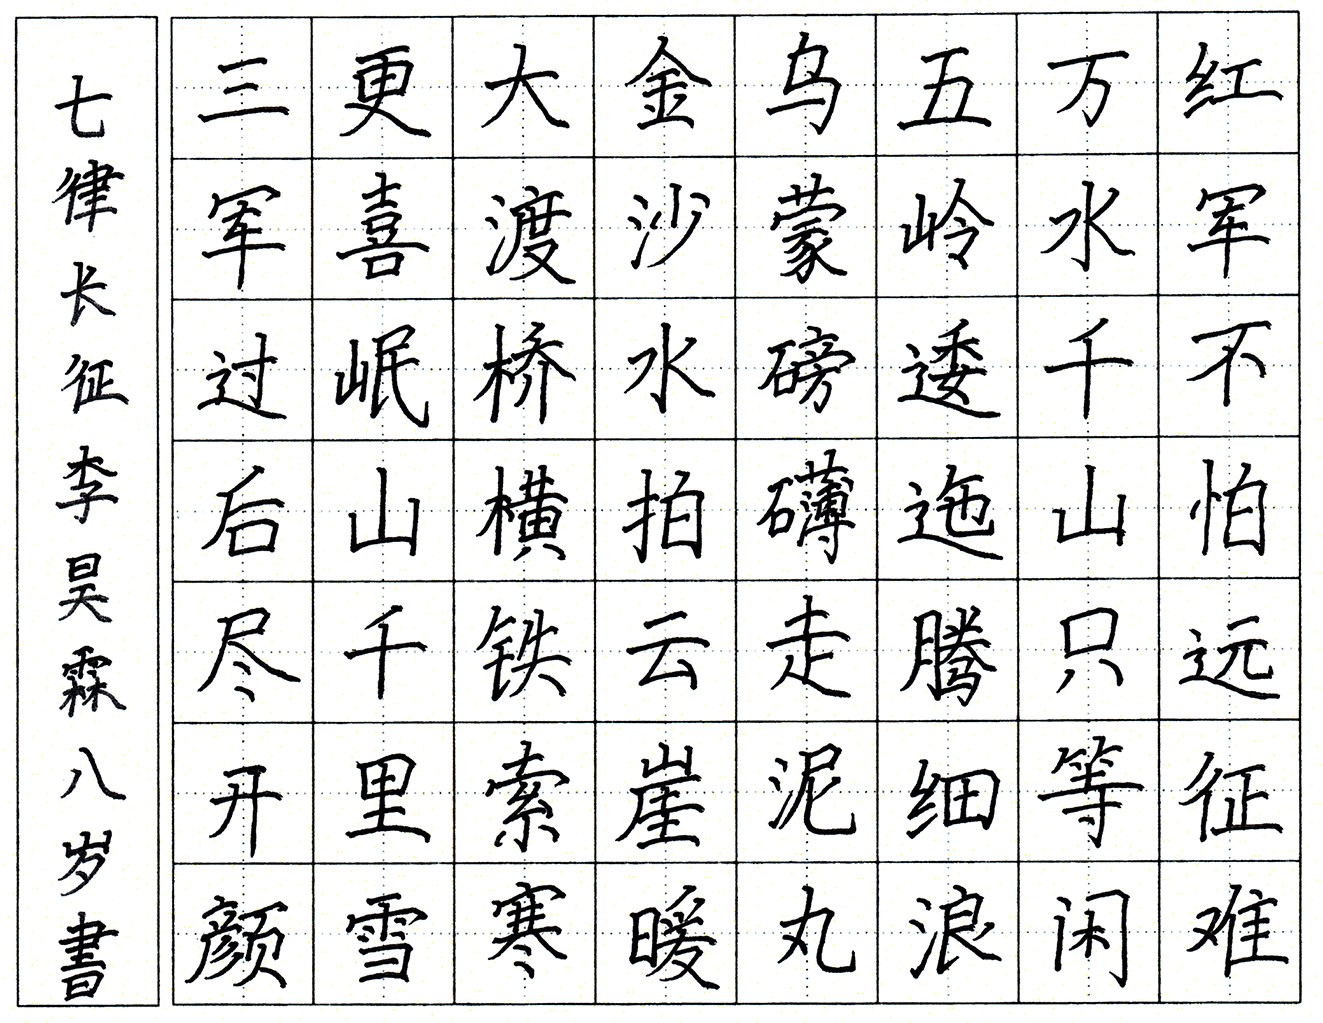 红军不怕远征难
万水千山只等闲
五岭逶迤腾细浪
乌蒙磅礴走泥丸
金沙水拍云崖暖
大渡桥横铁索寒
更喜岷山千里雪
三军过后尽开颜
七律长征李昊霖八岁書